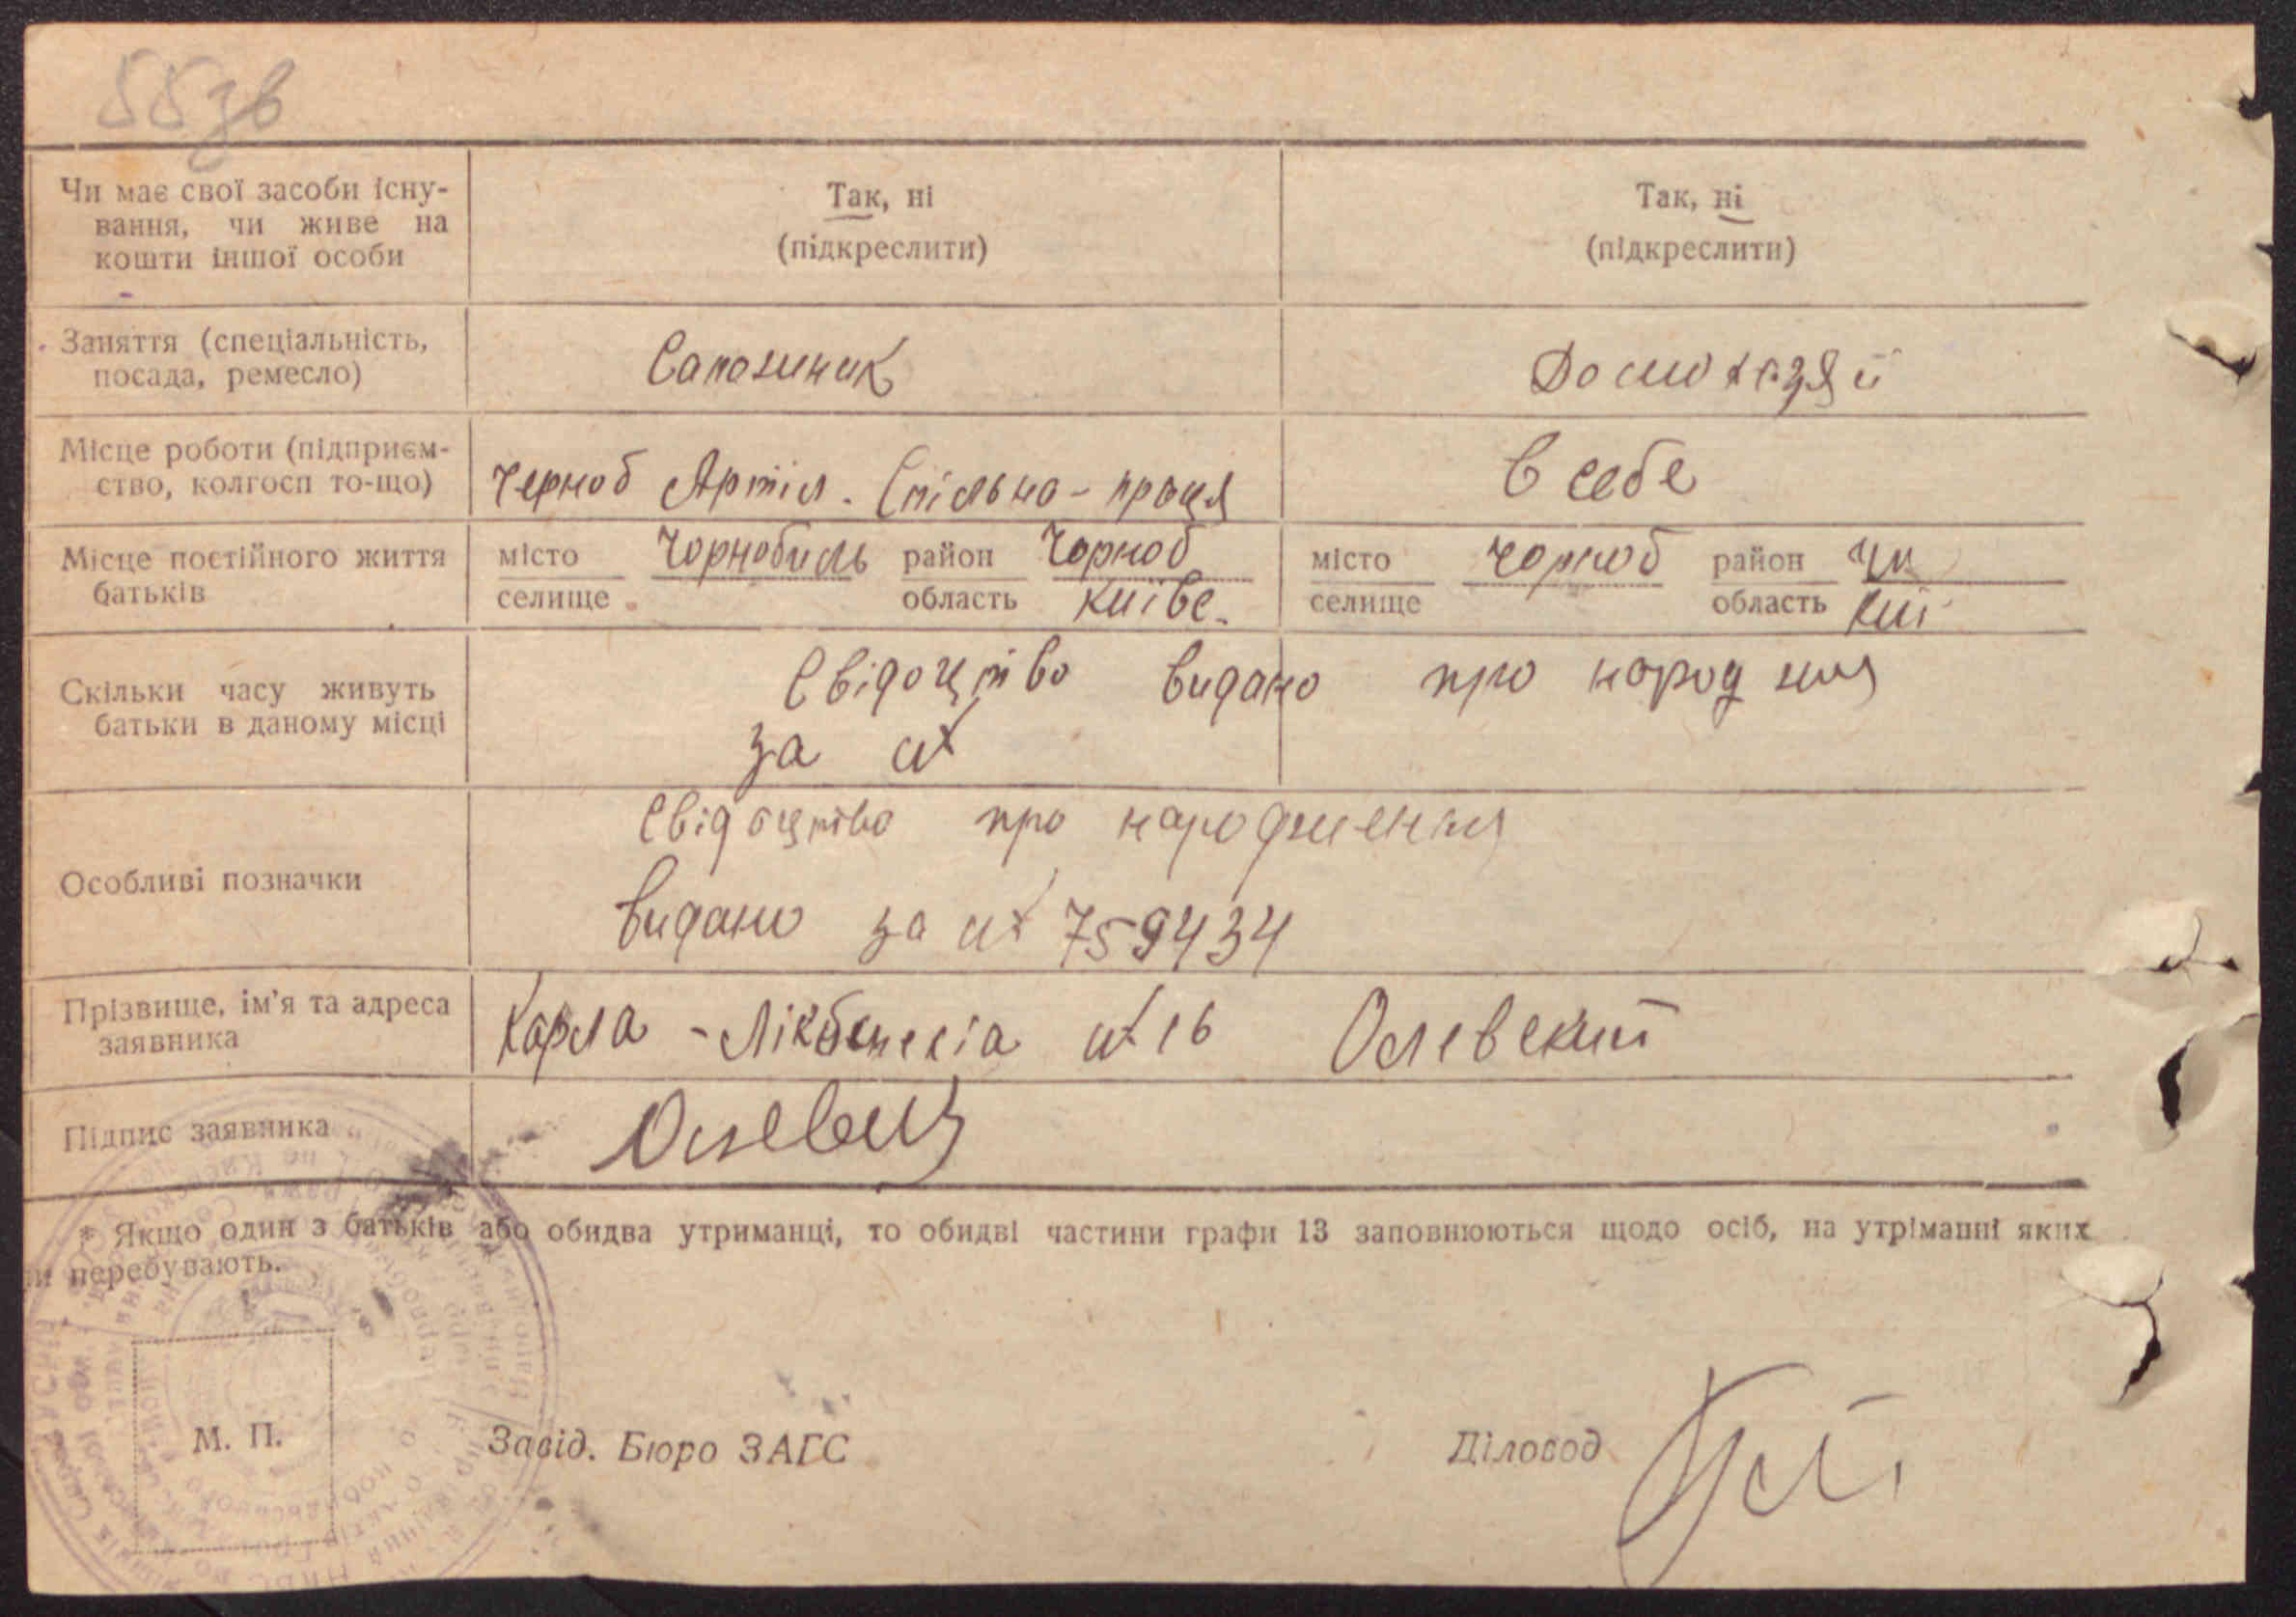 55зв
Чи має свої засоби існу-
вання, чи живе на
кошти іншої особи
Так, ні
(підкреслити)
Так, ні
(підкреслити)
Заняття (спеціальність,
посада, ремесло)
Сапожник
Домохазяй
Місце роботи (підприєм-
ство, колгосп то-що)
Черноб Артіл. Спільна-праця
В себе
Місце постійного життя
батьків
місто Чорнобиль район Чорноб
селище область Київс.
місто Чорноб район Чн
селище область Киї
Скільки часу живуть
батьки в даному місці
Свідоцтво видано про народжня
за №
Особливі позначки
Свідоцтво про народження
видано за № 759434
Прізвище, ім'я та адреса
заявника
Карла - Лікбнехіа № 16 Олевский
Підпис заявника
* Якщо один з батьків або обидва утриманці, то обидві частини графи 13 заповнюються щодо осіб, на утріманні яких
и перебувають.
М. П.
Завід. Бюро ЗАГС
Діловод